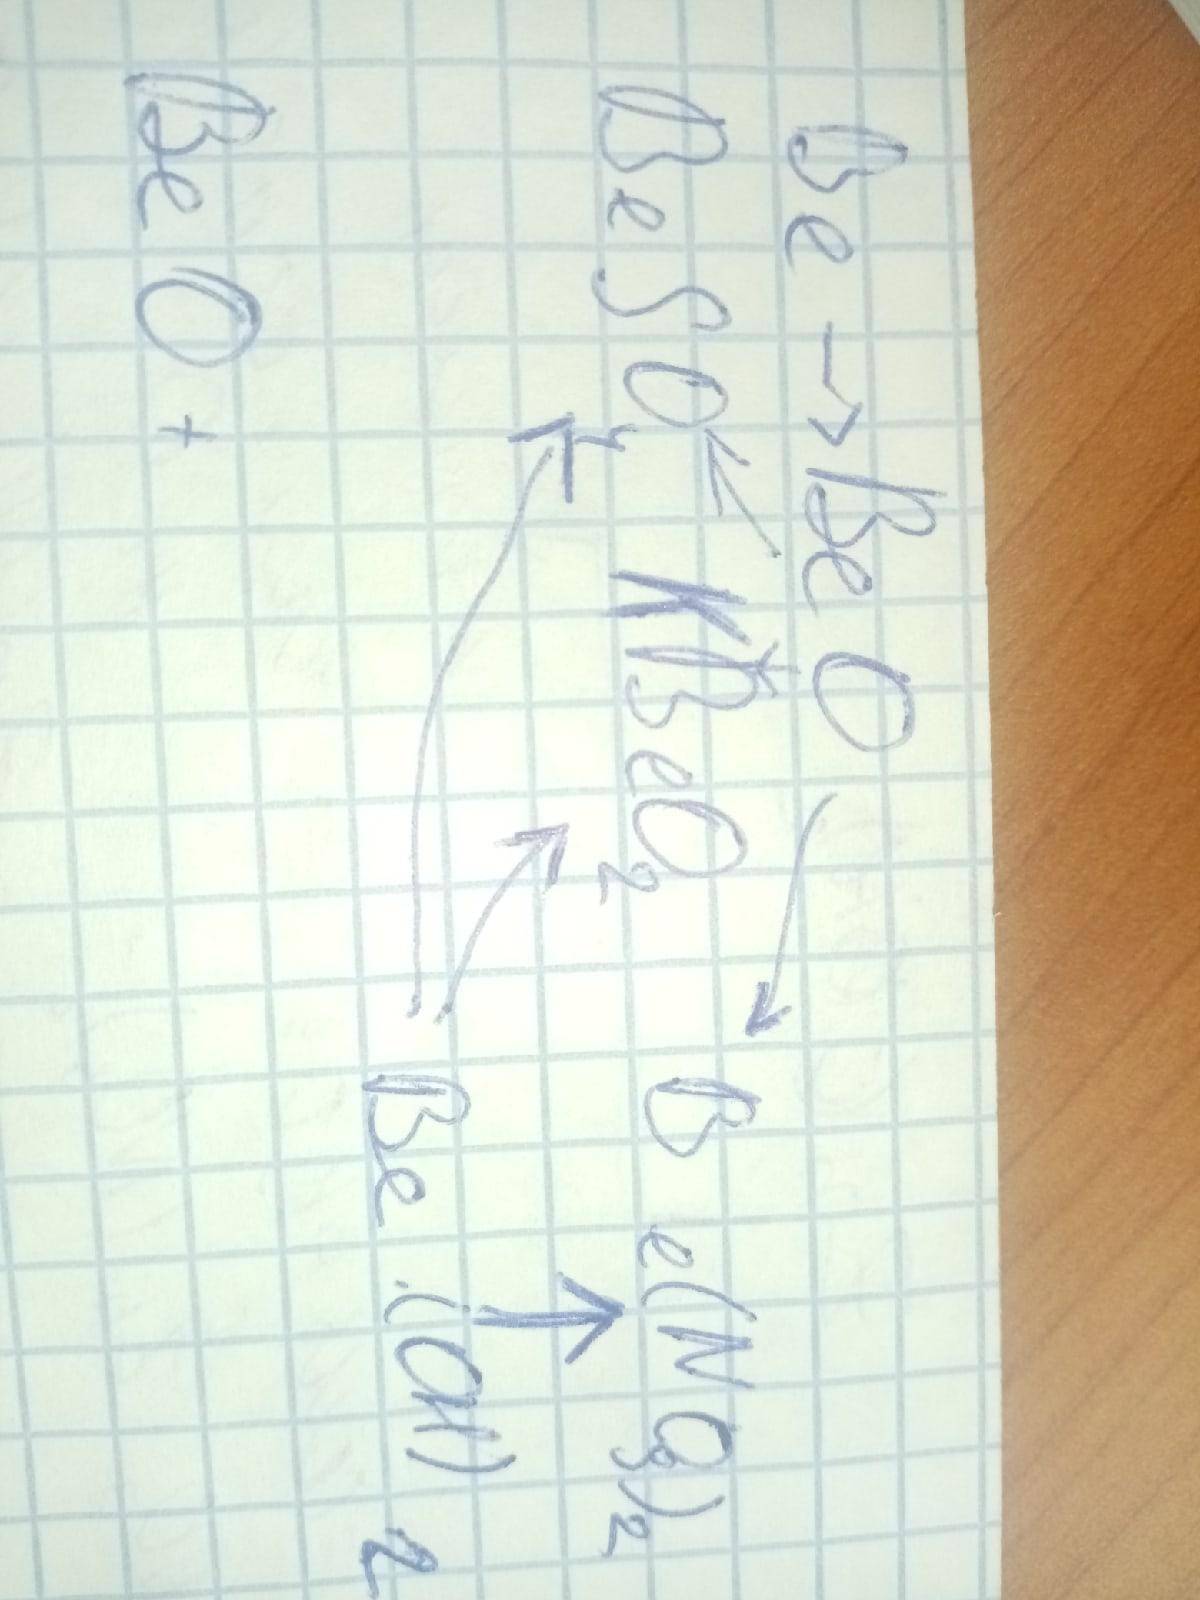 Be → BeO
BeSO4 KBeO2 Be(NO3)2
Be(OH)2
BeO +